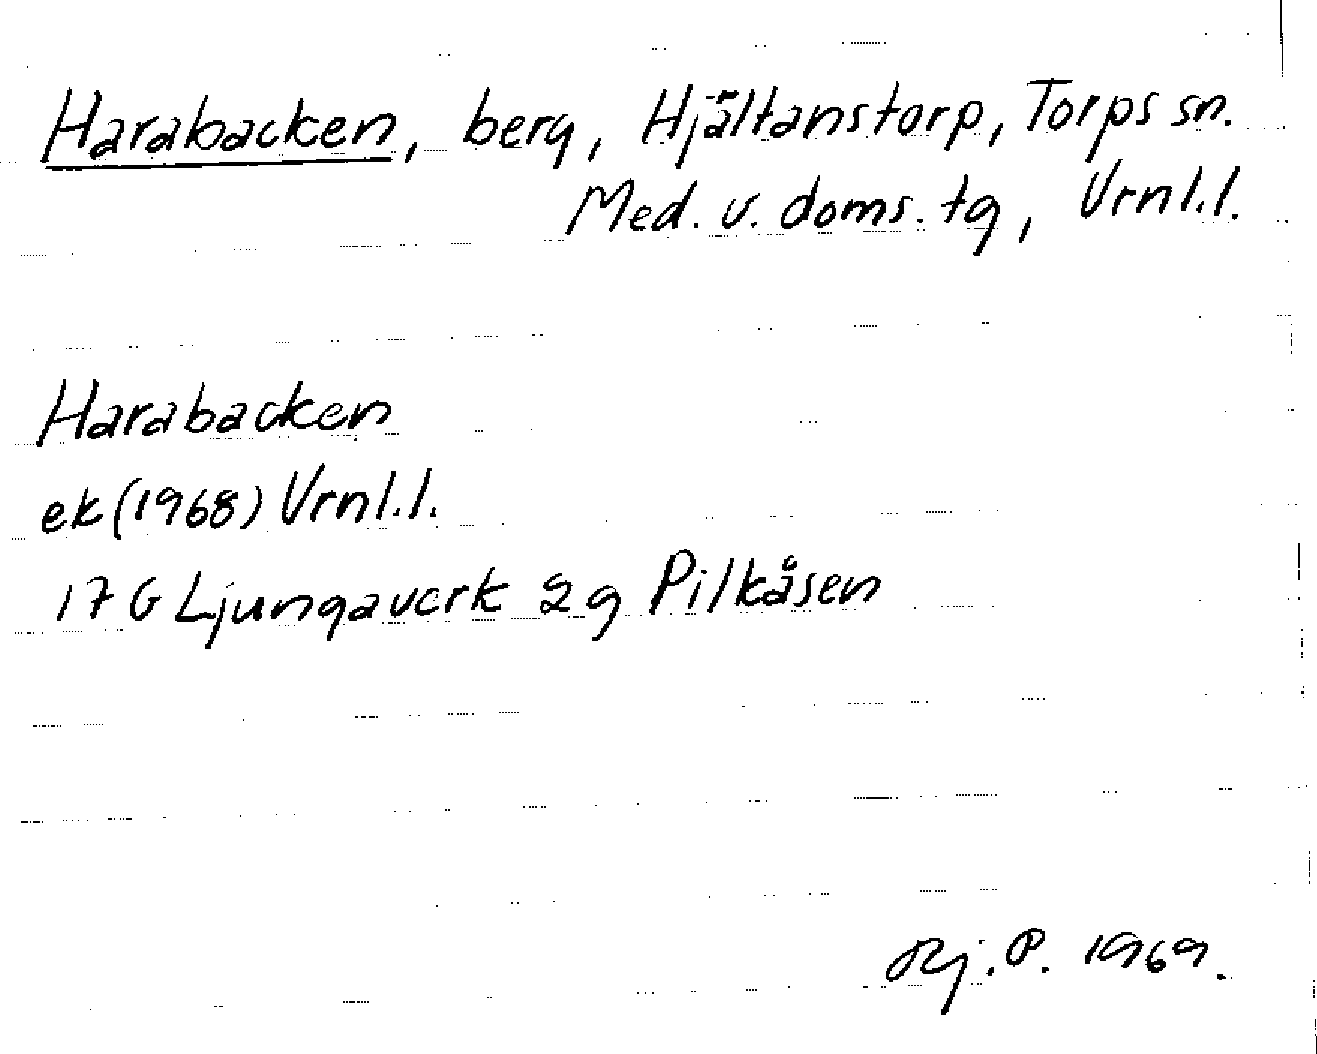 Harabacken, berg, Hjältanstorp, Torps sn.
Med. v. doms. tg, Vrnl.l.
Harabacken
ek (1968) Vrnl.l.
17 G Ljungaverk 2g Pilkåsen
Rj. P. 1969.